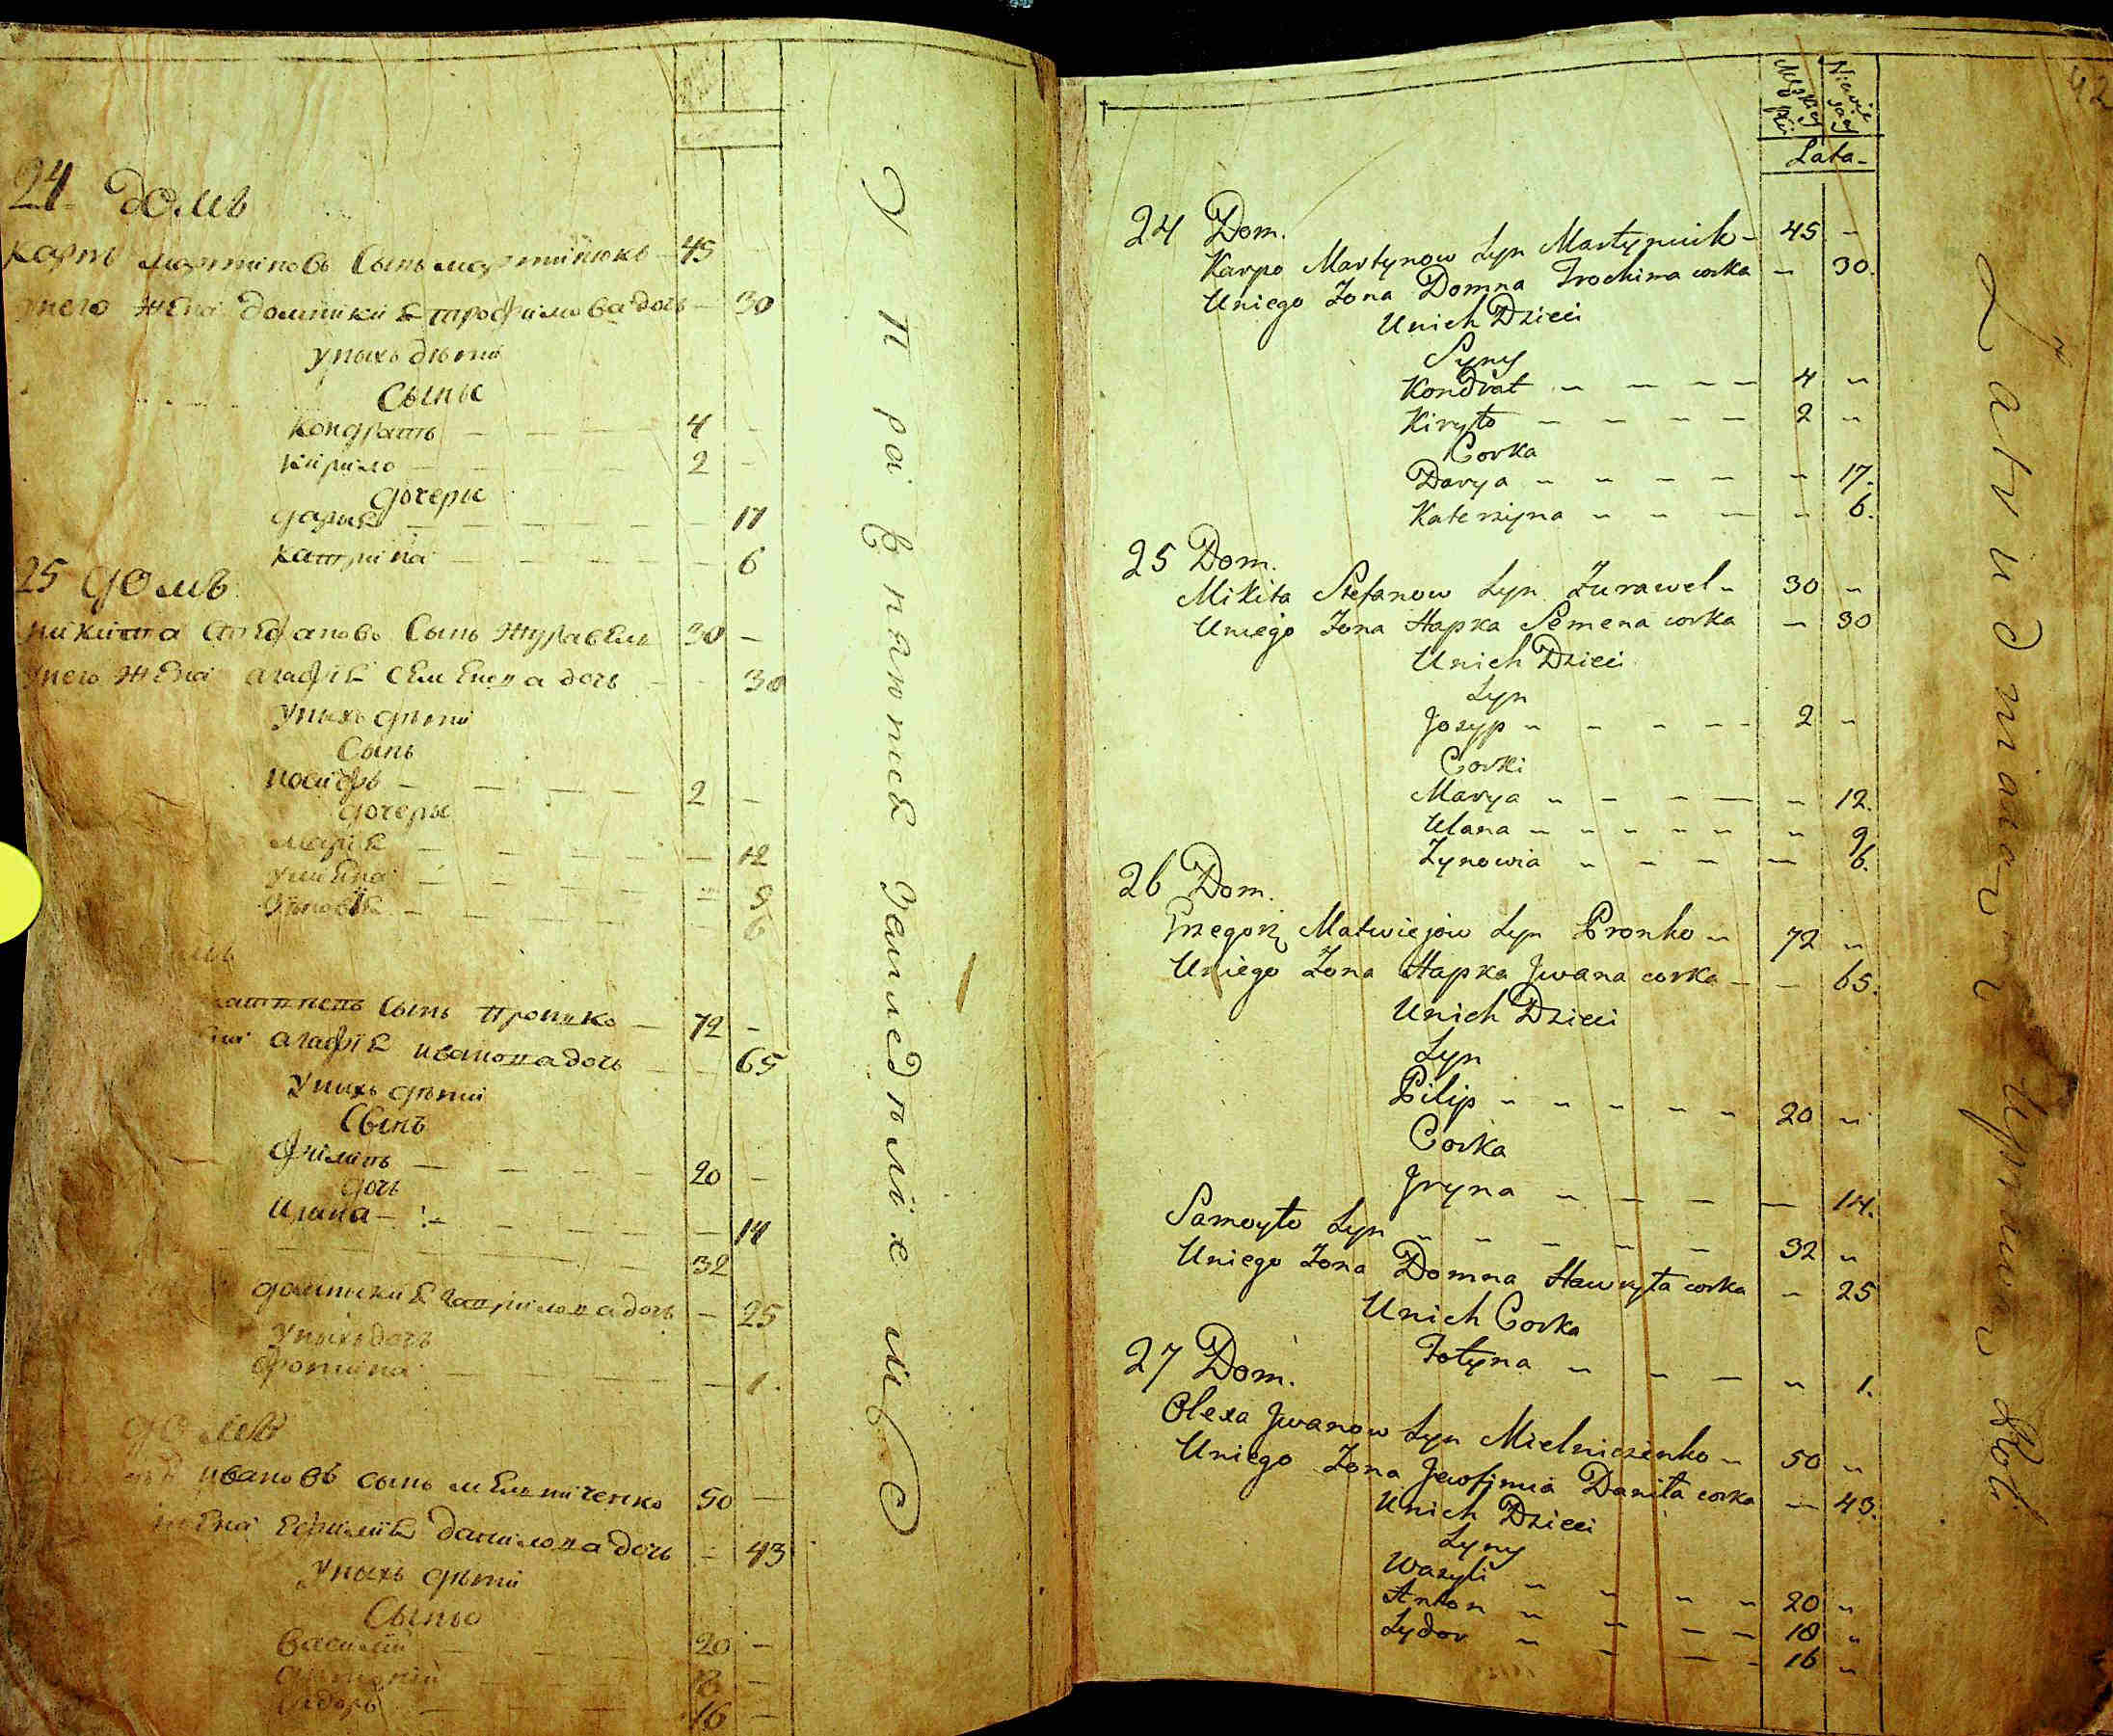 24 домъ
карпъ мартиновъ сынъ мартинюкъ — 45 —
унего жена домникия трофимова дочь — 30
унихъ дѣти
Сыны
кондратъ — — — 4 —
кирило — — — 2 —
дочери
дария — — — — 17
катрина — — — — 6
25 домъ
никита стефановъ сынъ журавель 30 —
унего жена агафия семенова дочь — — 30
унихъ дѣти
Сынъ
иосифъ — — — — 2 —
дочери
мария — — — — — 12
улияна — — — — 9
зѣновия — — — — — 6
сынъ пронко — 72 —
агафия иванова дочь — — 65
унихъ дѣти
Сынъ
филипъ — — — — 20 —
дочь
ирина — — — — — 14
— — — — 32
домникия гаврилова дочь — 25
унихъ дочь
фотина — — — — — 1.
домъ
ивановъ сынъ мелниченко 50 —
жена евфимия данилова дочь — 43
унихъ дѣти
Сыны
василий — — — 20 —
— — — 18 —
сидоръ — — — 16 —
управнюнтся
замедѣлие
42
Męzkiey płci
Lata
24 Dom.
Karpo Martynow Syn Martyniuk — 45 —
Uniego Zona Domna Trochima corka — 30.
Unich Dzieci
Syny
Kondrat — — — — 4 —
Kiryło — — — — 2 —
Corka
Darya — — — — — 17.
Katerzyna — — — — 6.
25 Dom.
Mikita Stefanow Syn Zurawel — 30 —
Uniego Zona Hapka Semena corka — 30
Unich Dzieci
Syn
Jozyp — — — — — 2 —
Corki
Marya — — — — — 12.
Ulana — — — — — — 9.
Zynowia — — — — 6.
26 Dom.
Grzegorz Matwiejow Syn Pronko — 72 —
Uniego Zona Hapka Jwana corka — — 65.
Unich Dzieci
Syn
Pilip — — — — — 20 —
Corka
Jryna — — — — 14.
Samoyło Syn — — — — — 32 —
Uniego Zona Domna Hawryła corka — 25
Unich Corka
Fotyna — — — — 1.
27 Dom.
Olexa Jwanow Syn Mielniczenko — 50 —
Uniego Zona Jewfimia Daniła corka — 43.
Unich Dzieci
Syny
Wasyli — — — — 20 —
Anton — — — — 18 —
Sydor — — — — 16 —
Zatrudniaiący Uprawą Roli